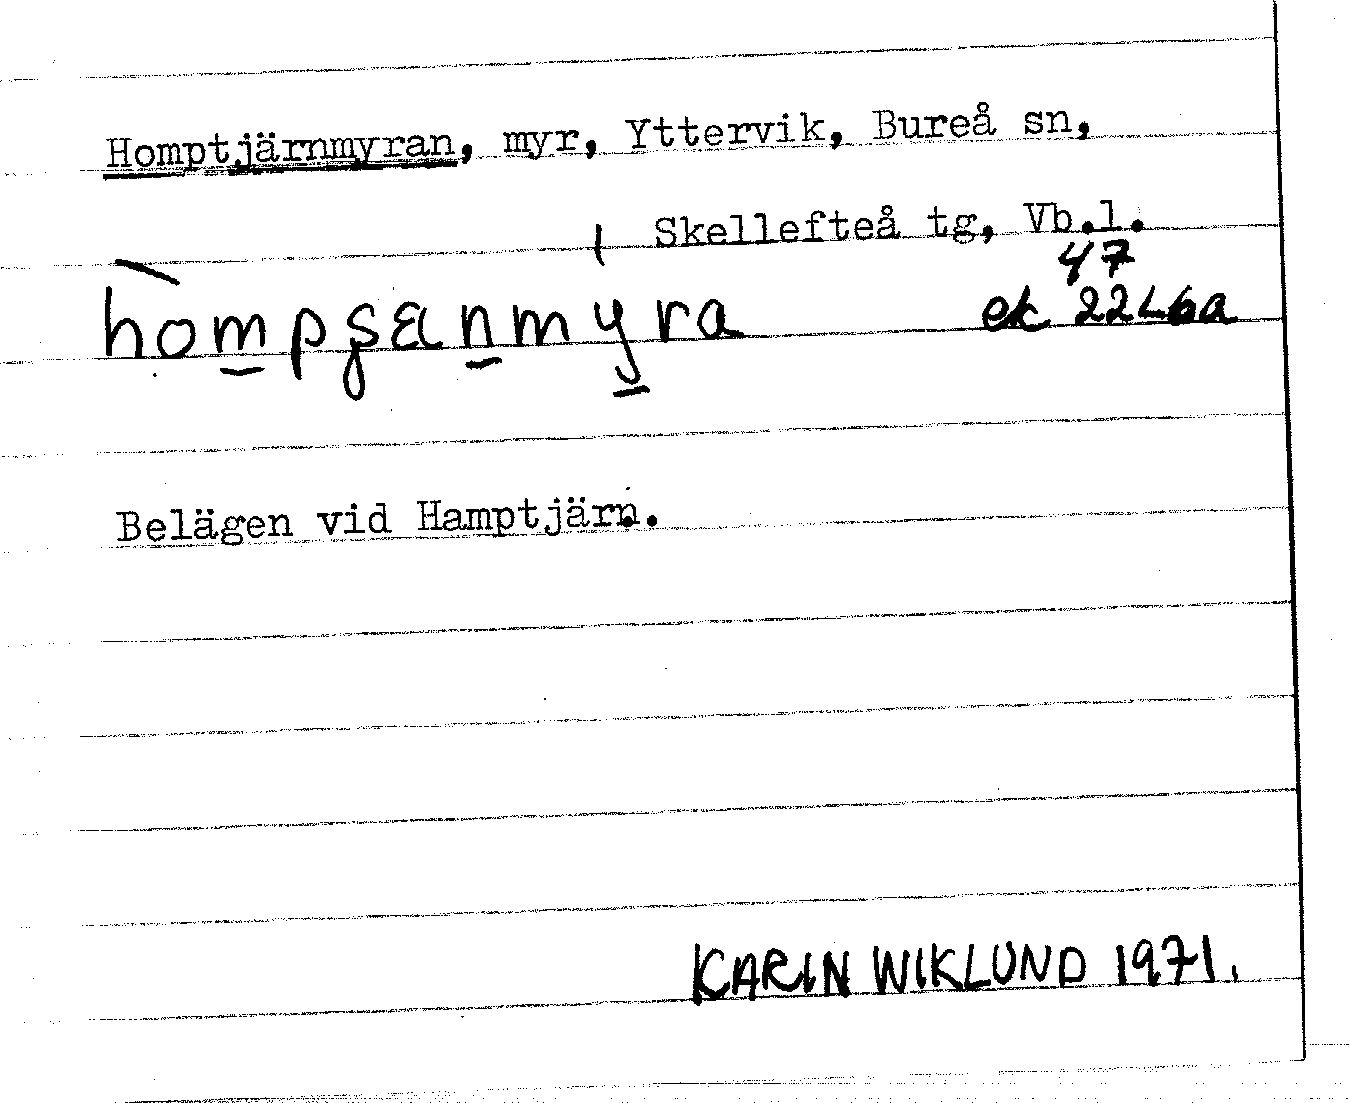 Homptjärnmyran, myr, Yttervik, Bureå sn,
Skellefteå tg, Vb.l.
47
hompʂænmyra ek 22L6a
Belägen vid Hamptjärn.
KARIN WIKLUND 1971.